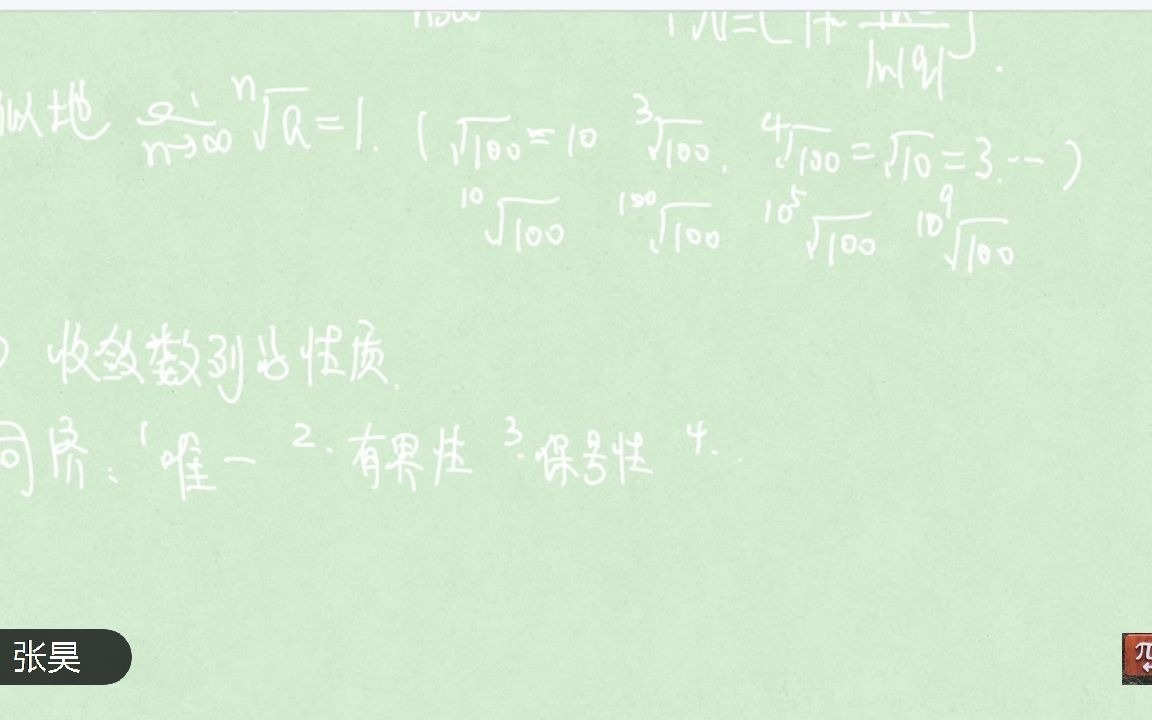 N=[1+ ln|q| ].
似地 lim n→∞ ⁿ√a=1. (√100=10 ³√100, ⁴√100=√10=3.…)
¹⁰√100 ¹⁰⁰√100 10⁵√100 10⁹√100
收敛数列的性质.
同济: 1 唯一 2. 有界性 3. 保号性 4.
张昊
π